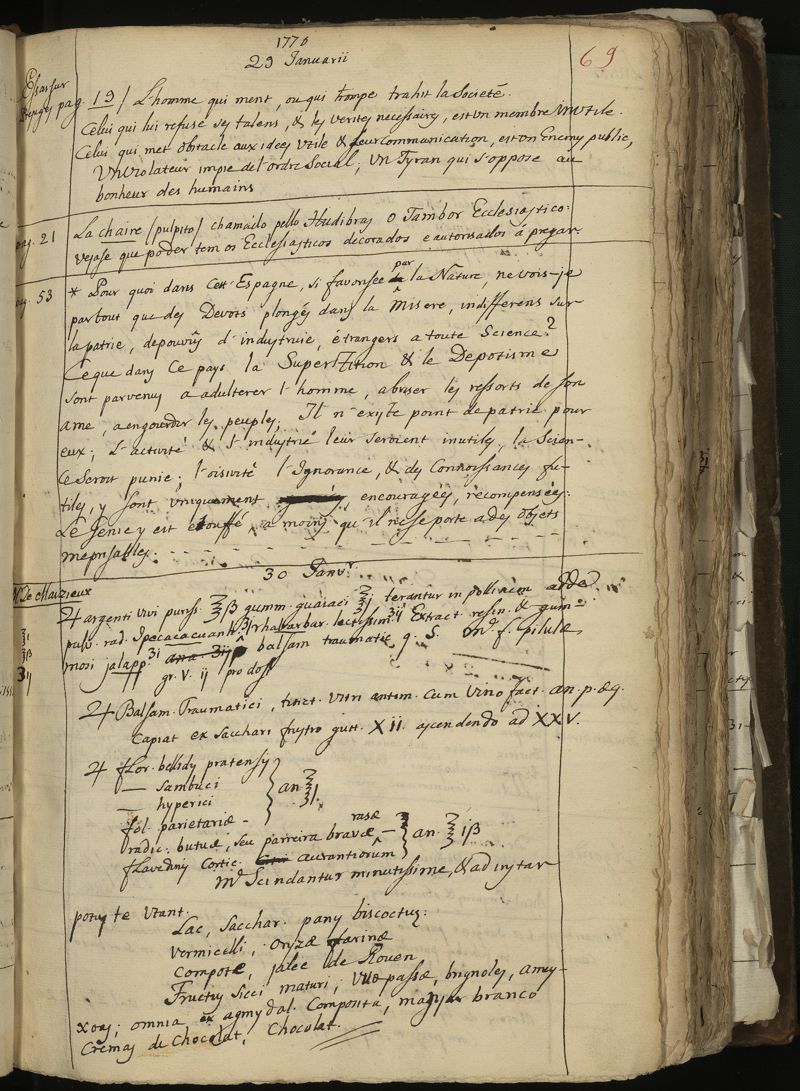 1770
29 Januarii
69
Essai sur
pag. 19 / L'homme qui ment, ou qui trompe trahit la Societé.
Celui qui lui refuse ses talens, & les verites necessaires, est un membre inutile.
Celui qui met obstacle aux idées utile & leur communication, est un Enemy public,
Un violateur impie de l'ordre Social; un Tyran qui s'oppose au
bonheur des humains
pag. 21 La chaire (pulpito) chamado pello Hudibras o Tambor Ecclesiastico:
vejase que poder tem os Ecclesiasticos decorados e autorisados á pregar.
pag. 53 * Pour quoi dans cett Espagne, si favorisée par la Nature, ne vois-je
partout que des Devots plongés dans la Misere, indifferens sur
la patrie, depourvûs d'industruie, étrangers a toute Science?
Ceque dans Ce pays la Superstition & le Depotisme
sont parvenus a adulterer l'homme, a briser les ressorts de son
ame, a engourdir les peuples; Il n'existe point de patrie pour
eux; L'activité & l'industrie leur seroient inutiles, la Scien-
ce seroit punie; l'oisiveté l'Ignorance, & des Connoissances fu-
tiles, y sont uniquement encouragées, recompensées:
Le Genie y est etouffé, a moins qu'il ne se porte a des objets
meprisables.
30 Janv.
Mr De Mauzieux
♃ argenti vivi puriss. ℥ß gumm. guaiaci ℥j terantur in pollinem adde
pulv. rad. Ipecacuanh. ʒj rhabarbar. lectissim. ʒij Extract. resin. & gum-
mosi jalapp. ʒi ana ʒij balsam traumatic q. S. m. f. pilulæ
gr. V. ij pro dosi
℥j
℥ß
ʒij
♃ Balsam. Traumatici, tinct. vitri antim. cum vino fact. an. p. æq.
Capiat ex sacchari frustro gutt. XII. ascendendo ad XXV.
♃ flor. bellidis pratensis
— sambuci
— hyperici
an. ℥j.
fol. parietariæ -
radic. butuæ, seu parreira bravæ rasæ —
flavedinis cortic. aurantiorum
an. ℥iß
m. Scindantur minutissime, & ad instar
potus te utant.
Lac, Sacchar. panis biscoctus:
vermicelli, oryzæ farinæ
Compotæ, jalee de Rouen
Fructus sicci maturi, uvæ passæ, brignoles, amey-
xoas; omnia ex agmydal. Composita, manjar branco
Cremas de Chocolat, Chocolat.